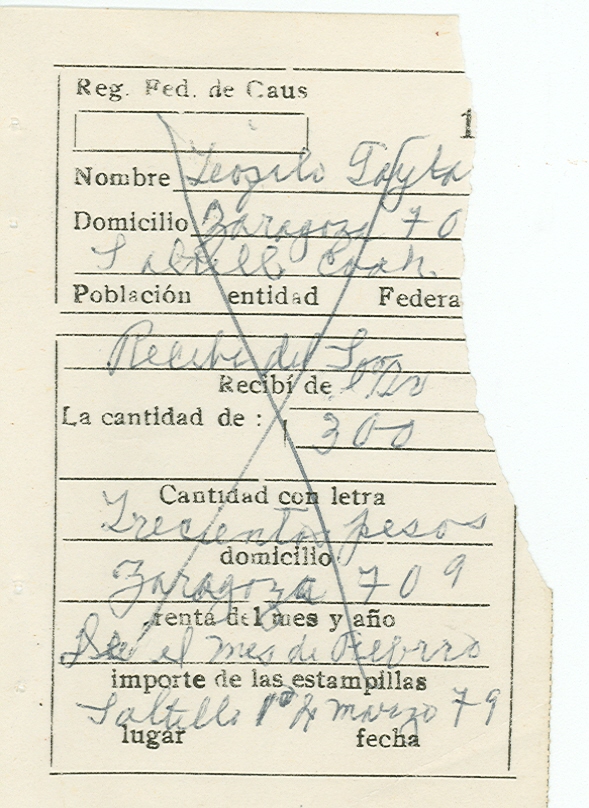 Reg. Fed. de Caus
1
Nombre Teofilo
Domicilio Zaragoza 70
Saltillo Coah.
Población entidad Federa
Recibi del Sr.
Recibí de
La cantidad de : 300
Cantidad con letra
Trecientos pesos
domicilio
Zaragoza 709
renta del mes y año
el mes de Febrro
importe de las estampillas
Saltillo 1º marzo 79
lugar fecha